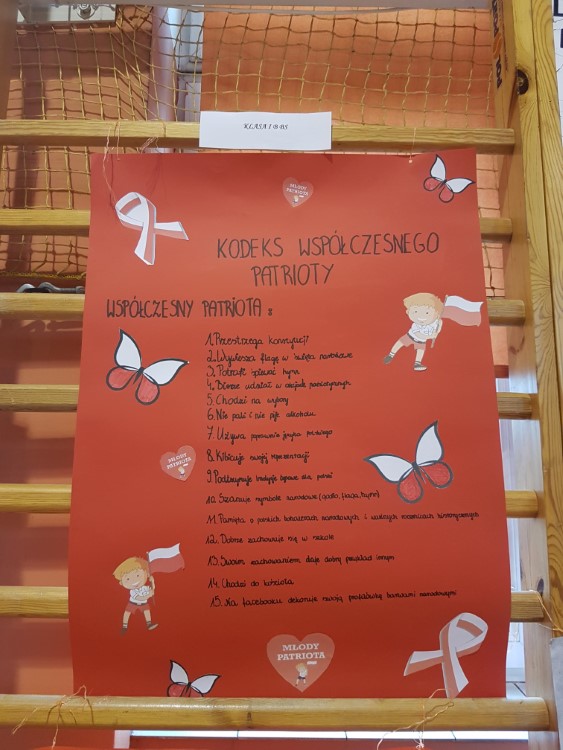 KLASA I B BS
MŁODY
PATRIOTA
KODEKS WSPÓŁCZESNEGO
PATRIOTY
WSPÓŁCZESNY PATRIOTA :
1. Przestrzega konstytucji
2. Wywiesza flagę w święta narodowe
3. Potrafi śpiewać hymn
4. Bierze udział w
5. Chodzi na wybory
6. Nie pali i nie pije alkoholu
7. Używa poprawnie języka polskiego
8. Kibicuje swojej reprezentacji
9. Podtrzymuje tradycje
MŁODY
PATRIOTA
10. Szanuje symbole narodowe (godło, flaga, hymn)
11. Pamięta o polskich bohaterach narodowych i ważnych rocznicach historycznych
12. Dobrze zachowuje się w szkole
13. Swoim zachowaniem daje dobry przykład innym
14. Chodzi do kościoła
15. Na facebooku dekoruje swoją profilówkę barwami narodowymi
MŁODY
PATRIOTA